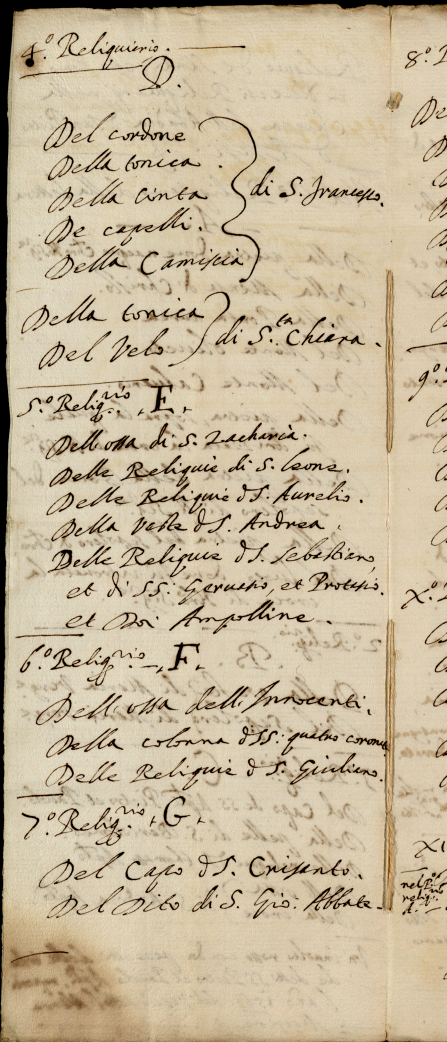 4.º Reliquiario.
D.
Del cordone
Della tonica.
Della Cinta
De capelli.
Della Camiscia
di S. Francesco.
Della tonica
Del Velo
di S.ta Chiara.
5.º Reliq.rio, E,
Dell'ossa di S. Zacharia.
Delle Reliquie di S. Leone.
Delle Reliquie d S. Aurelio.
Della Veste d S. Andrea.
Delle Reliquie d S. Sebastiano,
et di SS. Geruasio, et Protasio.
et Doi Ampolline.
6.º Reliq.rio, F,
Dell'ossa dell'Innocenti.
Della colonna d SS. quatro coronati
Delle Reliquie d S. Giuliano.
7.º Reliq.rio, G,
Del Capo d S. Crisanto.
Del Dito di S. Gio: Abbate.
8.º
9.º
X.º
XI